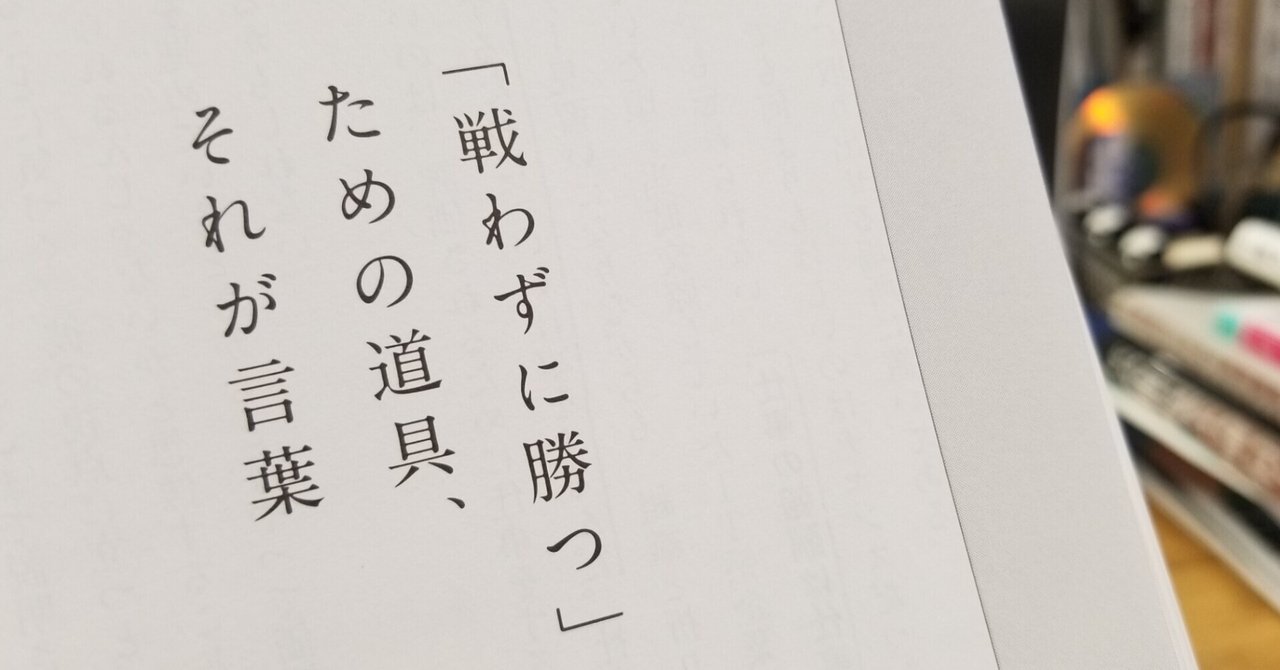 「戦わずに勝つ」
ための道具、
それが言葉